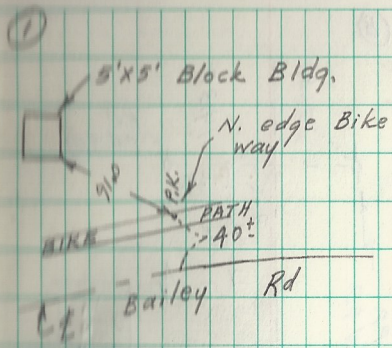 1
5'x5' Block Bldg.
N. edge Bike
way
P.K.
PATH
BIKE
40±
Bailey Rd